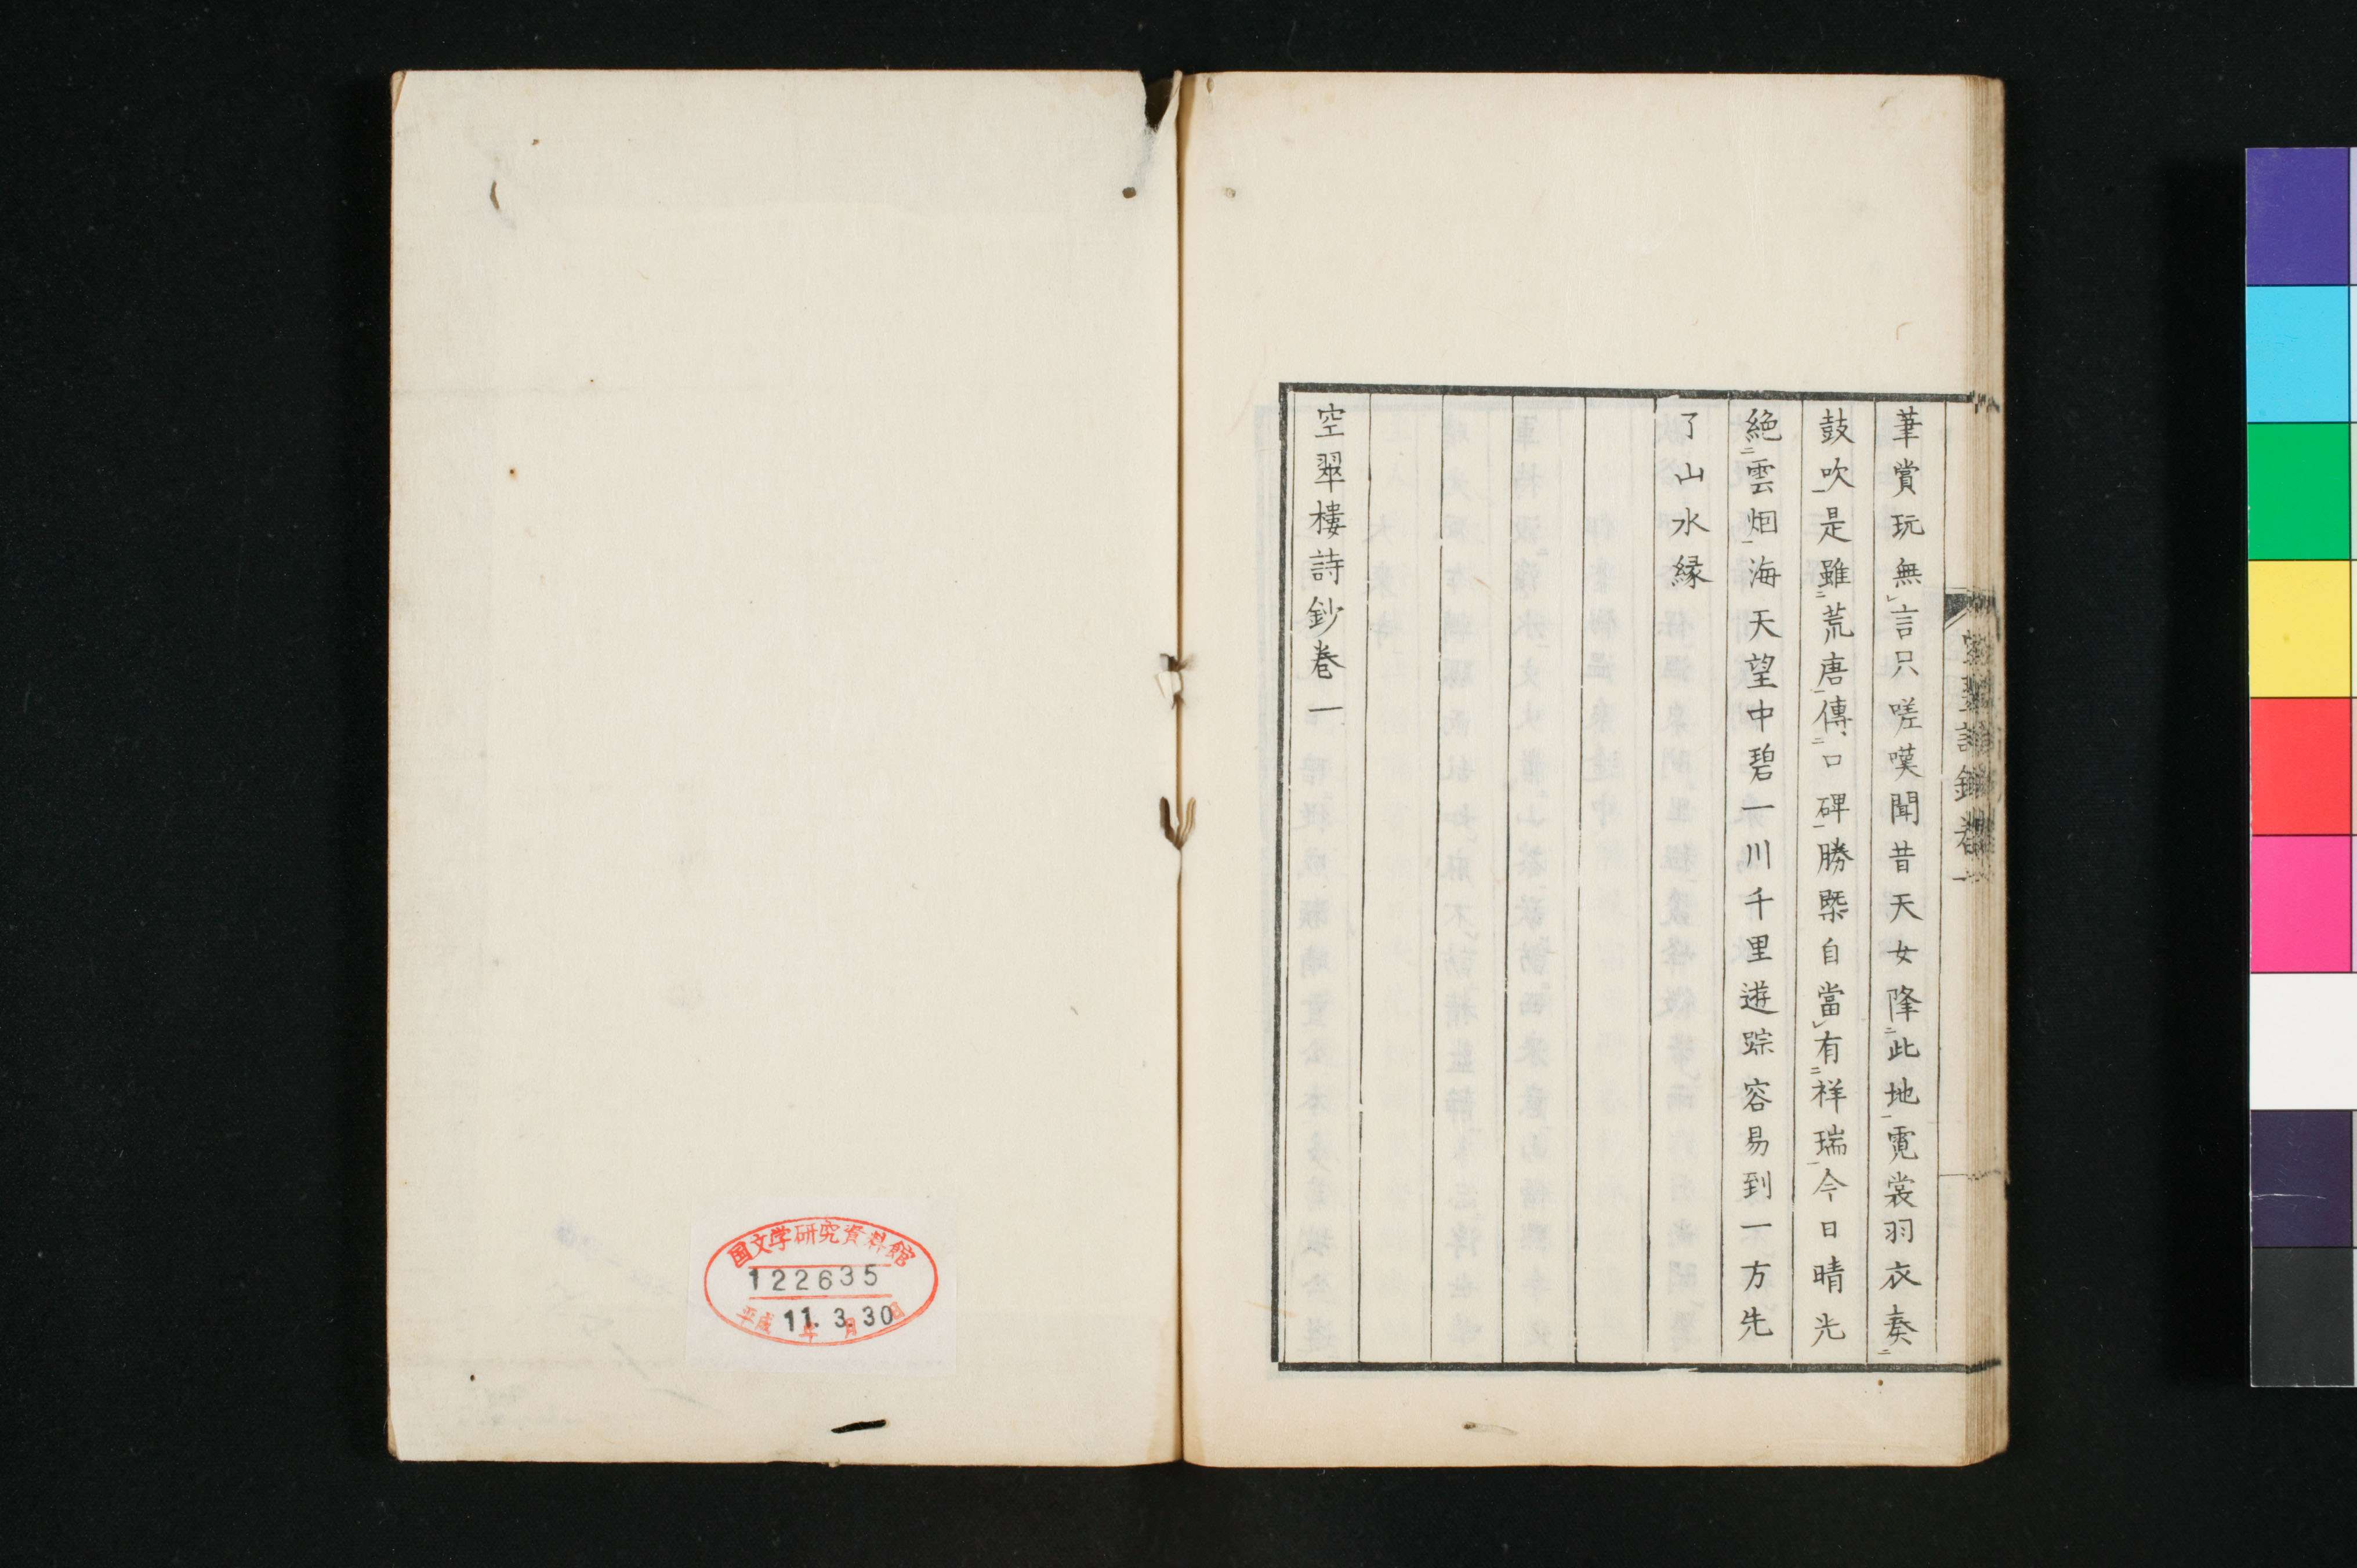 空翠詩鈔卷一
筆賞玩無言只嗟嘆聞昔天女降此地霓裳羽衣奏
鼓吹是雖荒唐傳口碑勝槩自當有祥瑞今日晴光
絶雲烟海天望中碧一川千里遊踪容易到一方先
了山水縁
空翠樓詩鈔卷一
国文学研究資料館
122635
平成11年3月30日